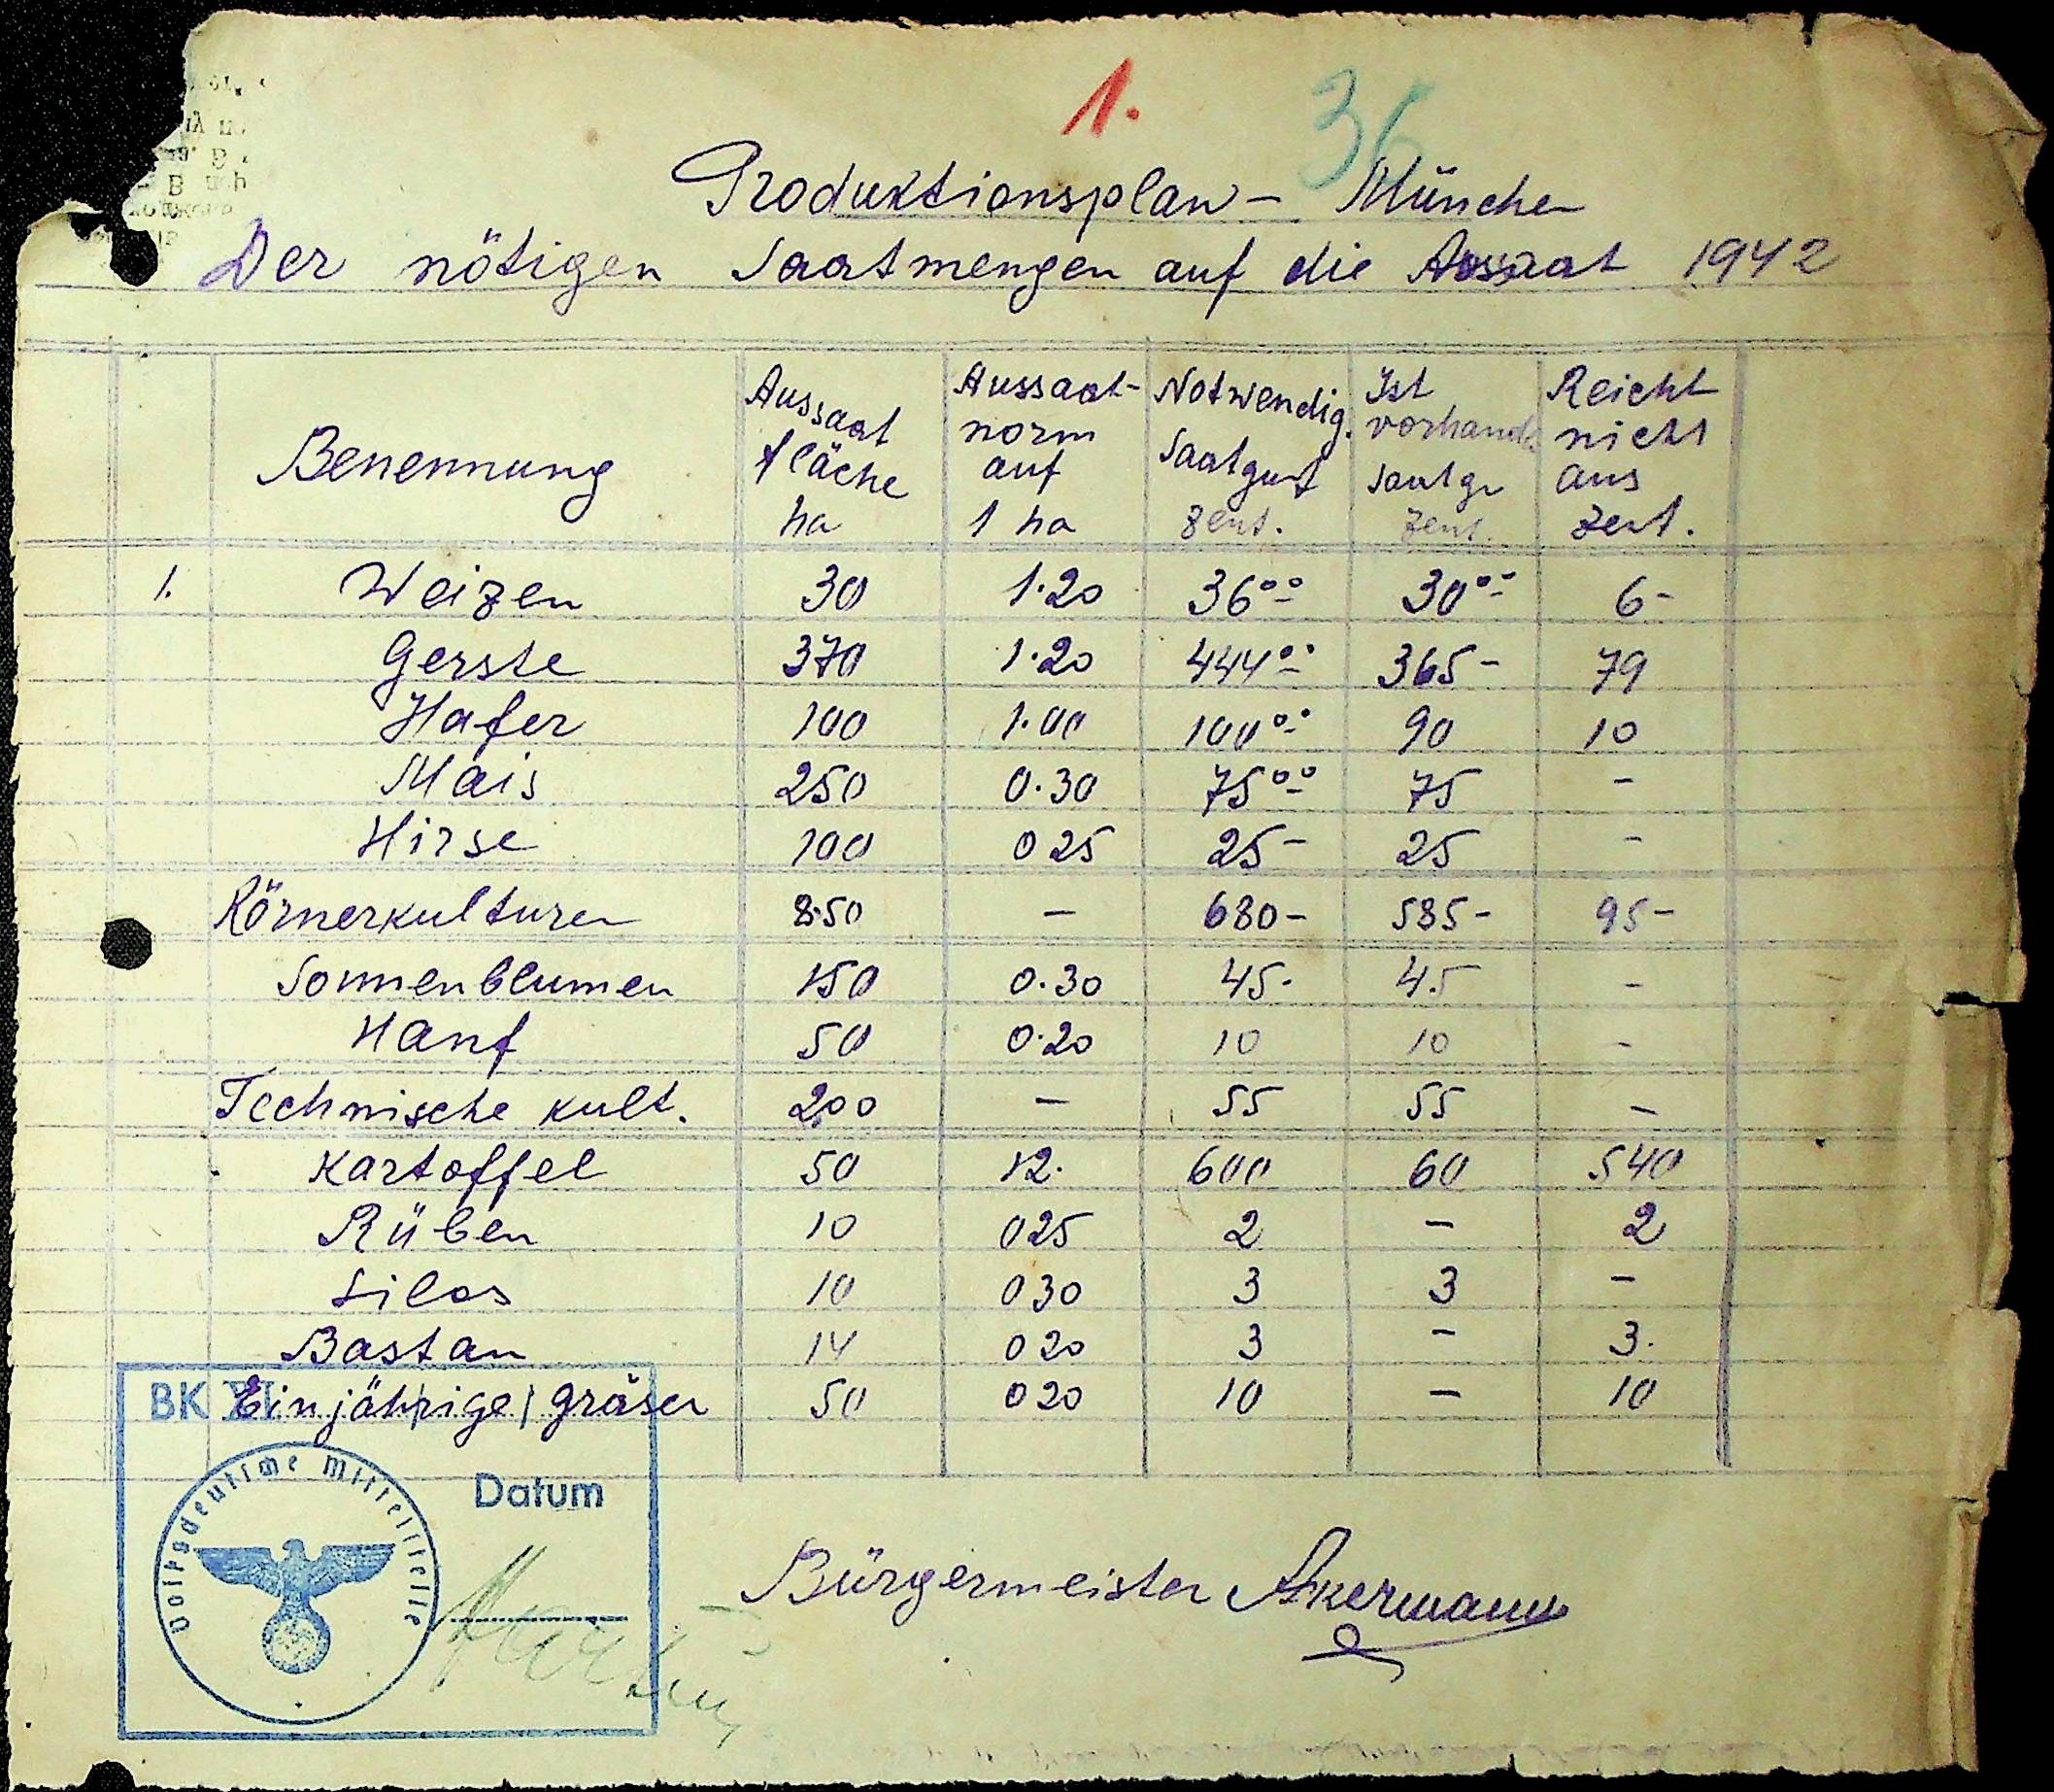 1. 36
Produktionsplan – München
Der nötigen Saatmengen auf die Aussaat 1942
Benennung | Aussaat fläche ha | Aussaat- norm auf 1 ha | Notwendig. Saatgut Zent. | Ist vorhand. Saatg Zent. | Reicht nicht aus Zent.
1. Weizen 30 1·20 36°° 30°° 6-
Gerste 370 1·20 444°° 365- 79
Hafer 100 1·00 100°° 90 10
Mais 250 0.30 75°° 75 -
Hirse 100 0 25 25- 25 -
Körnerkulturen 850 - 680- 585- 95-
Sonnenblumen 150 0.30 45- 45 -
Hanf 50 0·20 10 10 -
Technische kult. 200 - 55 55 -
Kartoffel 50 12. 600 60 540
Rüben 10 025 2 - 2
Silos 10 030 3 3 -
Bastan 14 020 3 - 3.
Einjährige gräser 50 020 10 - 10
BK VI
Volksdeutsche Mittelstelle
Datum
Bürgermeister Akermann